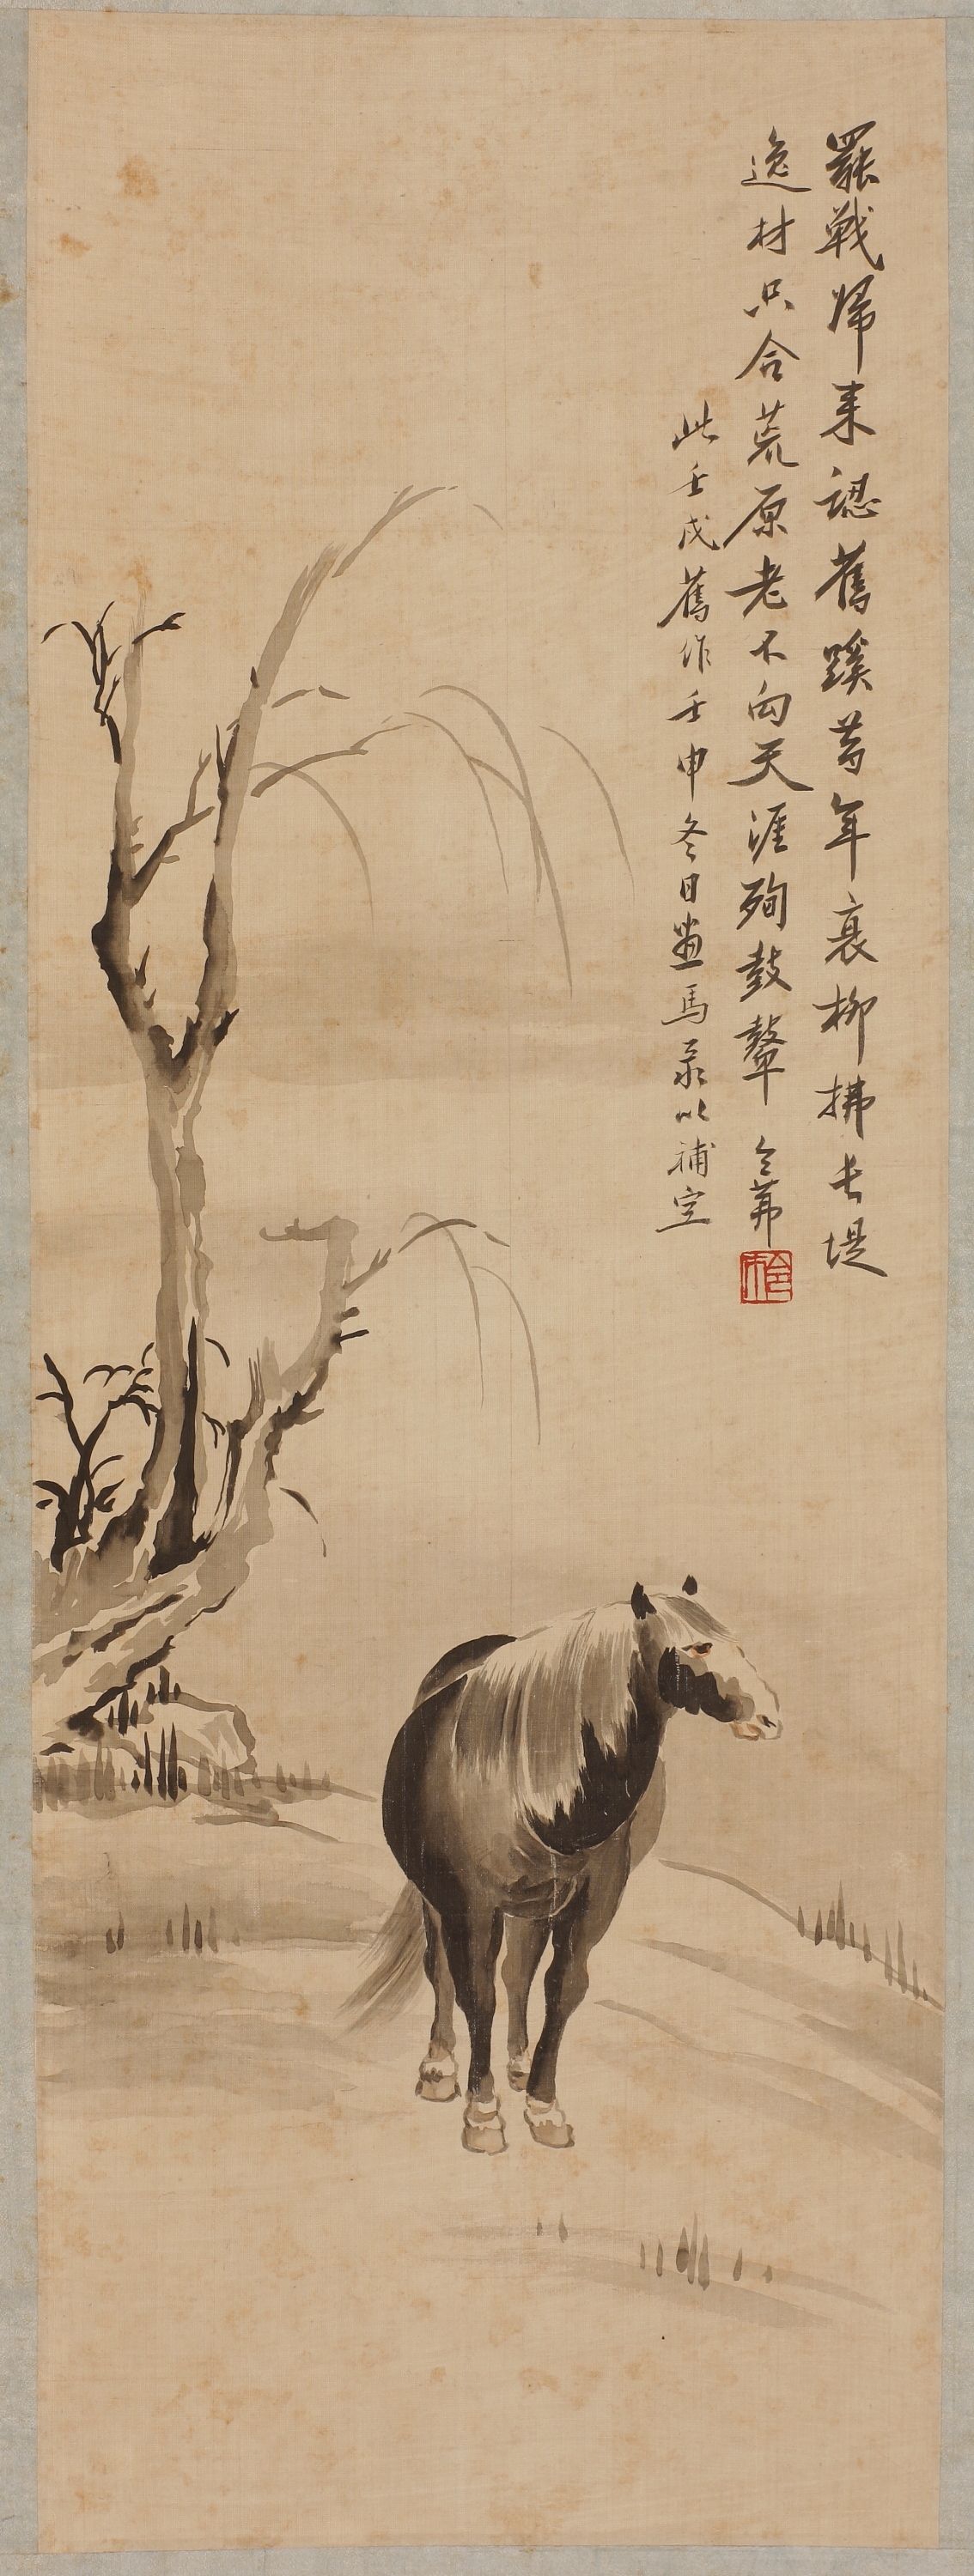 罷戰歸來認舊蹊昔年衰柳拂長堤
逸材只合荒原老不向天涯殉鼓鼙 令茀
此壬戌舊作壬申冬日畫馬录以補空